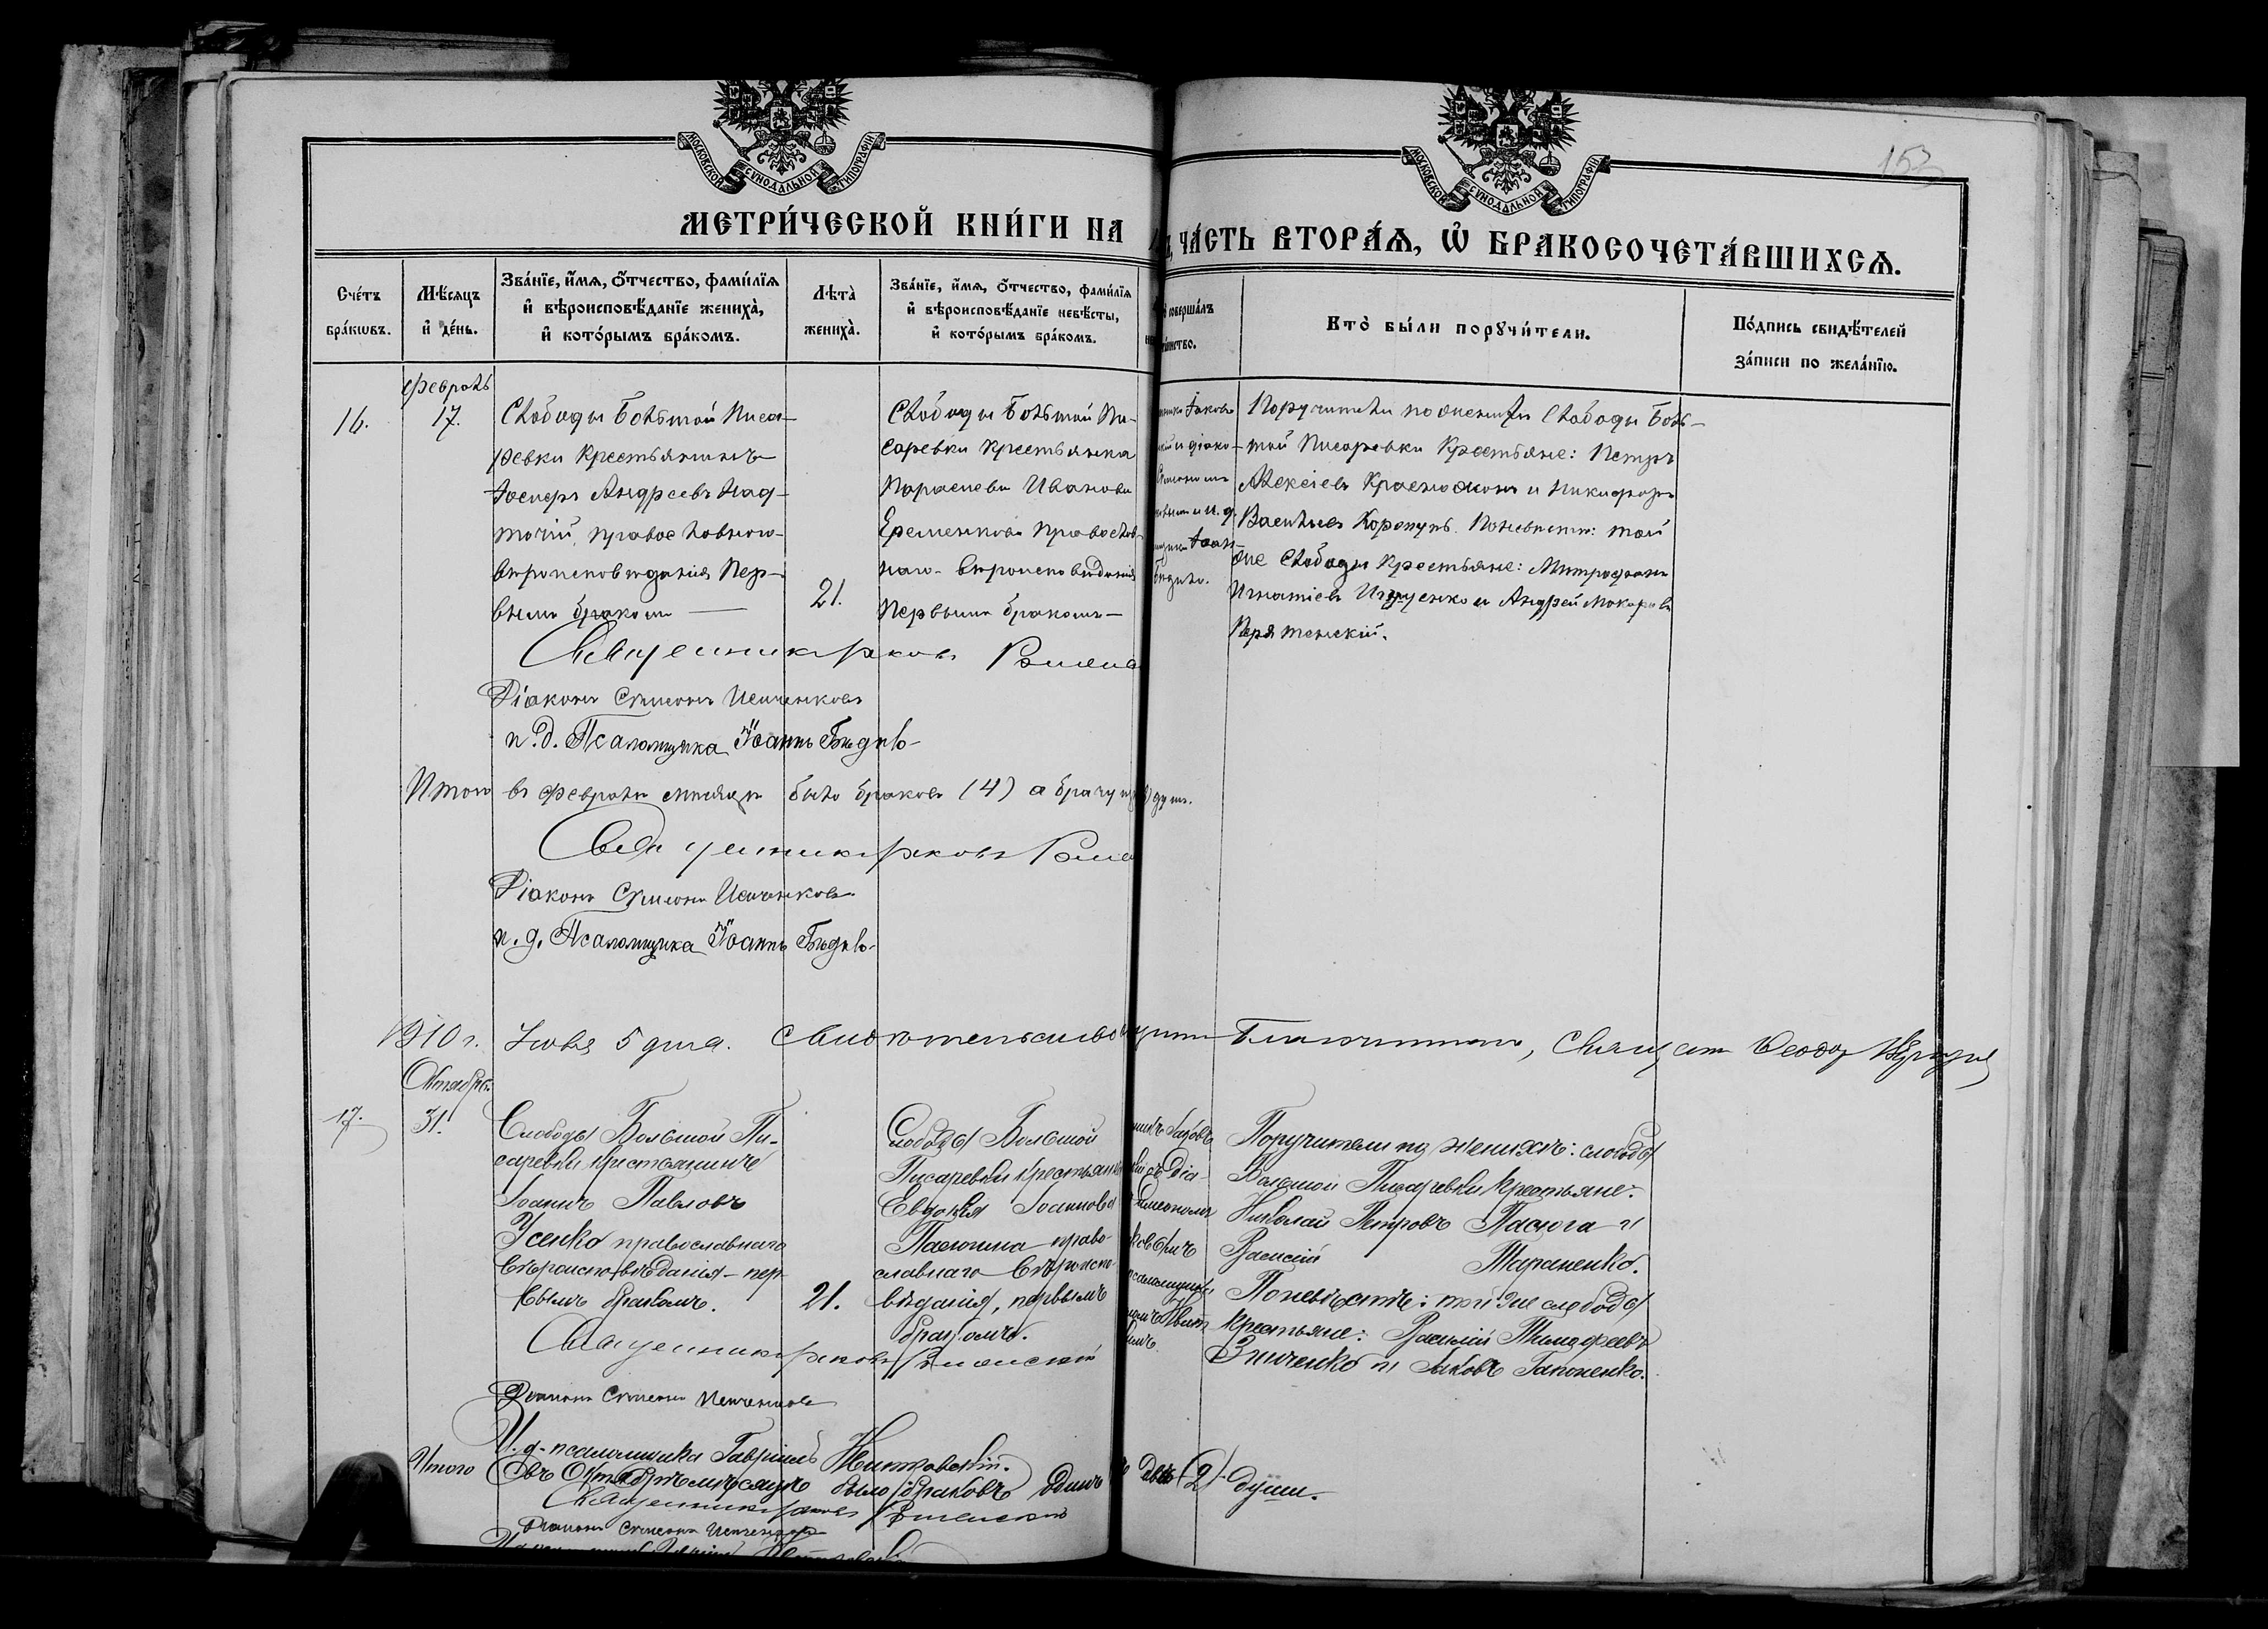 153
МОСКОВСКОЙ СΥНОДАЛЬНОЙ ТИПОГРАФІИ
МОСКОВСКОЙ СΥНОДАЛЬНОЙ ТИПОГРАФІИ
МЕТРИ́ЧЕСКОЙ КНИ́ГИ НА
ЧА́СТЬ ВТОРА́Ѧ, Ѽ БРАКОСОЧЕТА́ВШИХСѦ.
Сче́тъ бра́кѡвъ.
Мѣ́сяцъ и҆ де́нь.
Зва́нїе, и҆́мѧ, ѻ҆́тчество, фами́лїѧ
и҆ вѣроисповѣ́данїе жениха̀,
и҆ кото́рымъ бра́комъ.
Лѣта̀ жениха̀.
Зва́нїе, и҆́мѧ, ѻ҆́тчество, фами́лїѧ
и҆ вѣроисповѣ́данїе невѣ́сты,
и҆ кото́рымъ бра́комъ.
соверша́лъ
Кто̀ бы́ли порꙋчи́тели.
По́дпись свидѣ́телей
за́писи по жела́нїю.
Февраль
16.
17.
Слободы Большой Писа-
ревки крестьянинъ
Іосифъ Андреевъ Над-
точій, православнаго
вѣроисповѣданія Пер-
вымъ бракомъ
21.
Слободы Большой Пи-
саревки крестьянка
Параскева Иванова
Еременкова православ-
наго вѣроисповѣданія
Первымъ бракомъ
Іаковъ
и діако-
и и. д.
Іоан-
Бѣдило.
Поручители по женихѣ Слободы Боль-
шой Писаревки Крестьяне: Петръ
Алексіевъ Красноконъ и Никифоръ
Васильевъ Коропунъ. По невѣстѣ: той
же Слободы Крестьяне: Митрофанъ
Игнатіевъ Ищенко и Андрей Макаровъ
Перятенскій.
Священникъ Іаковъ
Діаконъ Симеонъ Иенченковъ
и. д. Псаломщика Іоаннъ Бѣдило
Итого въ Февралѣ мѣсяцѣ было браковъ (4) а брачущ душъ.
Священникъ Іаковъ
Діаконъ Симеонъ Иенченковъ
и. д. Псаломщика Іоаннъ Бѣдило
1910 г. Іюня 5 дня. Свидѣтельствовалъ Благочинный, Священ Ѳеодоръ
Октябрь.
17.
31.
Слободы Большой Пи-
саревки, крестьянинъ
Іоаннъ Павловъ
Усенко православнаго
вѣроисповѣданія – пер-
вымъ бракомъ.
21.
Слободы Большой
Писаревки крестьянка
Евдокія Іоаннова
Пасюгина право-
славнаго вѣроиспо-
вѣданія, первымъ
бракомъ.
никъ Іаковъ
съ Діа-
Симеономъ
ковымъ
псаломщикъ
Поручители по женихѣ: слободы
Большой Писаревки крестьяне:
Николай Петровъ Пасюга и
Василій Тараненко.
По невѣстѣ: той же слободы
крестьяне: Василій Тимофеевъ
Зинченко и Іаковъ Гапоненко.
Священникъ Іаковъ
Діаконъ Симеонъ Иенченковъ
И. д. псаломщика Гавріилъ
Итого въ Октябрѣ мѣсяцѣ было браковъ одинъ двѣ (2) души.
Священникъ Іаковъ
Діаконъ Симеонъ Иенченковъ